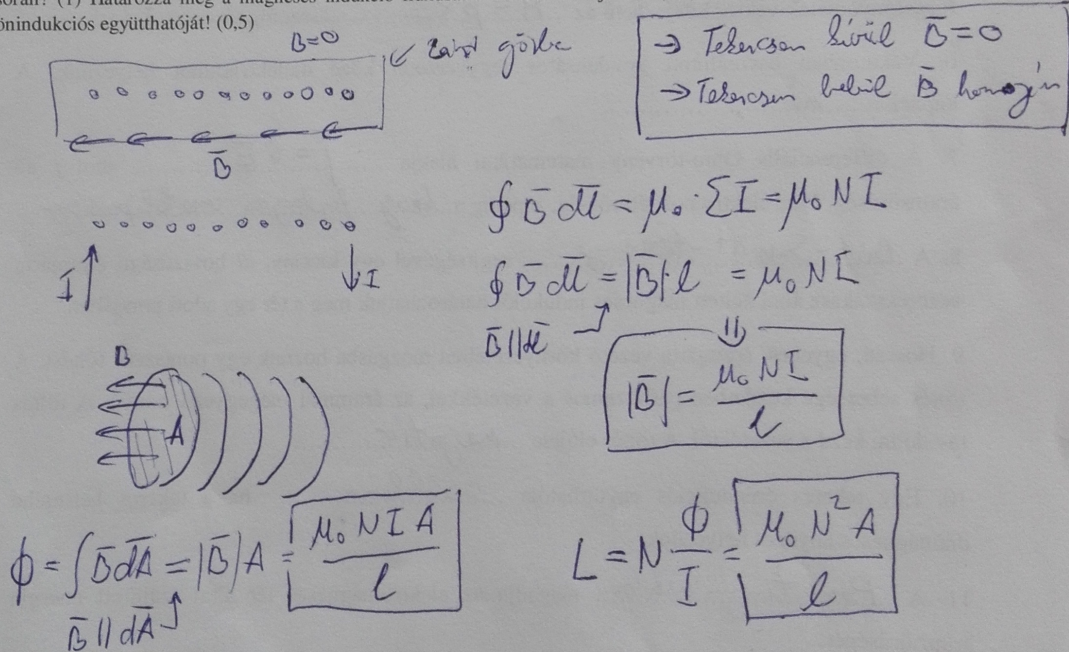 során? (1) Határozza meg a mágneses indukció
önindukciós együtthatóját! (0,5)
B=0
← zárt görbe
B̄
I
I
→ Tekercsen kívül B̄=0
→ Tekercsen belül B̄ homogén
∮ B̄ dl̄ = μ₀ · ΣI = μ₀ N I
∮ B̄ dl̄ = |B̄| · l = μ₀ N I
B̄ || dl̄
⇓
|B̄| = μ₀ N I / l
B
A
ϕ = ∫ B̄ dĀ = |B̄| A = μ₀ N I A / l
B̄ || dĀ
L = N Φ / I = μ₀ N² A / l